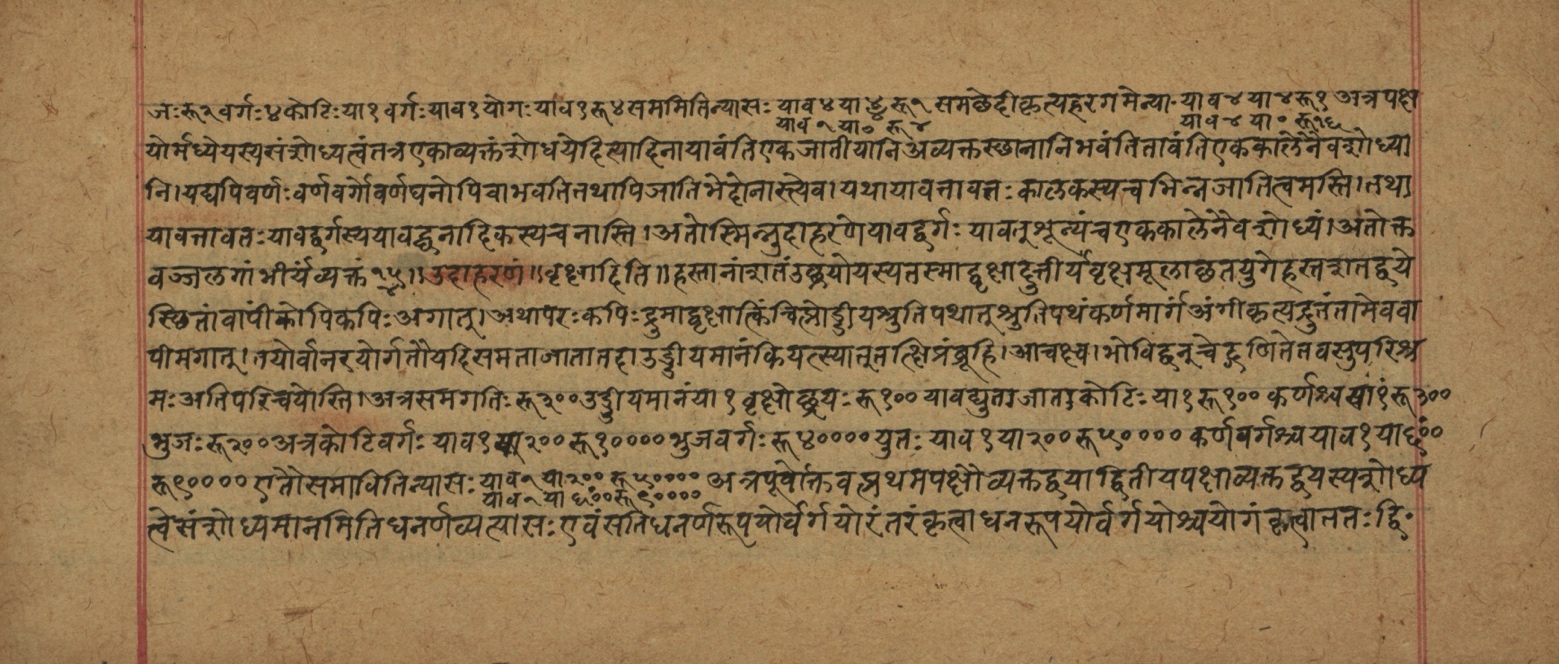 जः रू २ वर्गः ४ कोटिः या १ वर्गः याव १ योगः याव १ रू ४ सममितिन्यासः याव ४ या ४ं रू १ समछेदीकृत्यहरगमेन्याः याव ४ या ४ रू १ अत्रपक्ष
याव १ या ० रू ४ याव ४ या ० रू १६
योर्मध्येयस्यसंशोध्यत्वंतत्रएकाव्यक्तंशोधयेदित्यादिनायावंतिएकजातीयानिअव्यक्तस्छानानिभवंतितावंतिएककालेनैवशोध्या
नि। यद्यपिवर्णः वर्णवर्गोवर्णघनोपिवाभवतितथापिजातिभेदोनास्त्येव। यथायावत्तावतः कालकस्यचभिन्नजातित्वमस्ति। तथा
यावत्तावतः यावद्वर्गस्ययावद्घनादिकस्यचनास्ति। अतोस्मिन्नुदाहरणेयावद्वर्गः यावत्शून्यंचएककालेनैवशोध्यं। अतोक्त
वज्जलगांभीर्यंव्यक्तं १५॥ उदाहरणं॥ वृक्षादिति॥ हस्तानांशतंउछ्रयोयस्यतस्माद्वृक्षादुत्तीर्यवृक्षमूलाछतयुगेहस्तशतद्वये
स्छितांवापींकोपिकपिः अगात्। अथापरः कपिः द्रुमाद्वृक्षात्किंचित्प्रोड्डीयश्रुतिपथात्श्रुतिपथंकर्णमार्गंअंगीकृत्यद्रुतंतामेववा
पीमगात्। तयोर्वानरयोर्गतौयदिसमताजातातदाउड्डीयमानंकियत्स्यात्तत्क्षिप्रंब्रूहि। आचक्ष्व। भोविद्वन्चेद्गणितेतवसुपरिश्र
मः अतिपरिचयोस्ति। अत्रसमगतिः रू ३०० उड्डीयमानंया १ वृक्षोछ्रयः रू १०० यावद्युताजाताकोटिः या १ रू १०० कर्णश्च या १ं रू ३००
भुजः रू २०० अत्रकोटिवर्गः याव १ या २०० रू १०००० भुजवर्गः रू ४०००० युतः याव १ या २०० रू ५०००० कर्णवर्गश्चयाव १ या ६ं००
रू ९०००० एतौसमावितिन्यासः याव १ या २०० रू ५०००० अत्रपूर्वोक्तवत्प्रथमपक्षौव्यक्तद्वयाद्वितीयपक्षाव्यक्तद्वयस्यशोध्य
याव १ या ६ं०० रू ९००००
त्वेसंशोध्यमानमितिधनर्णव्यत्यासः एवंसतिधनर्णरूपयोर्वर्गयोरंतरंकृत्वाधनरूपयोर्वर्गयोश्चयोगंकृत्वाततः द्वि